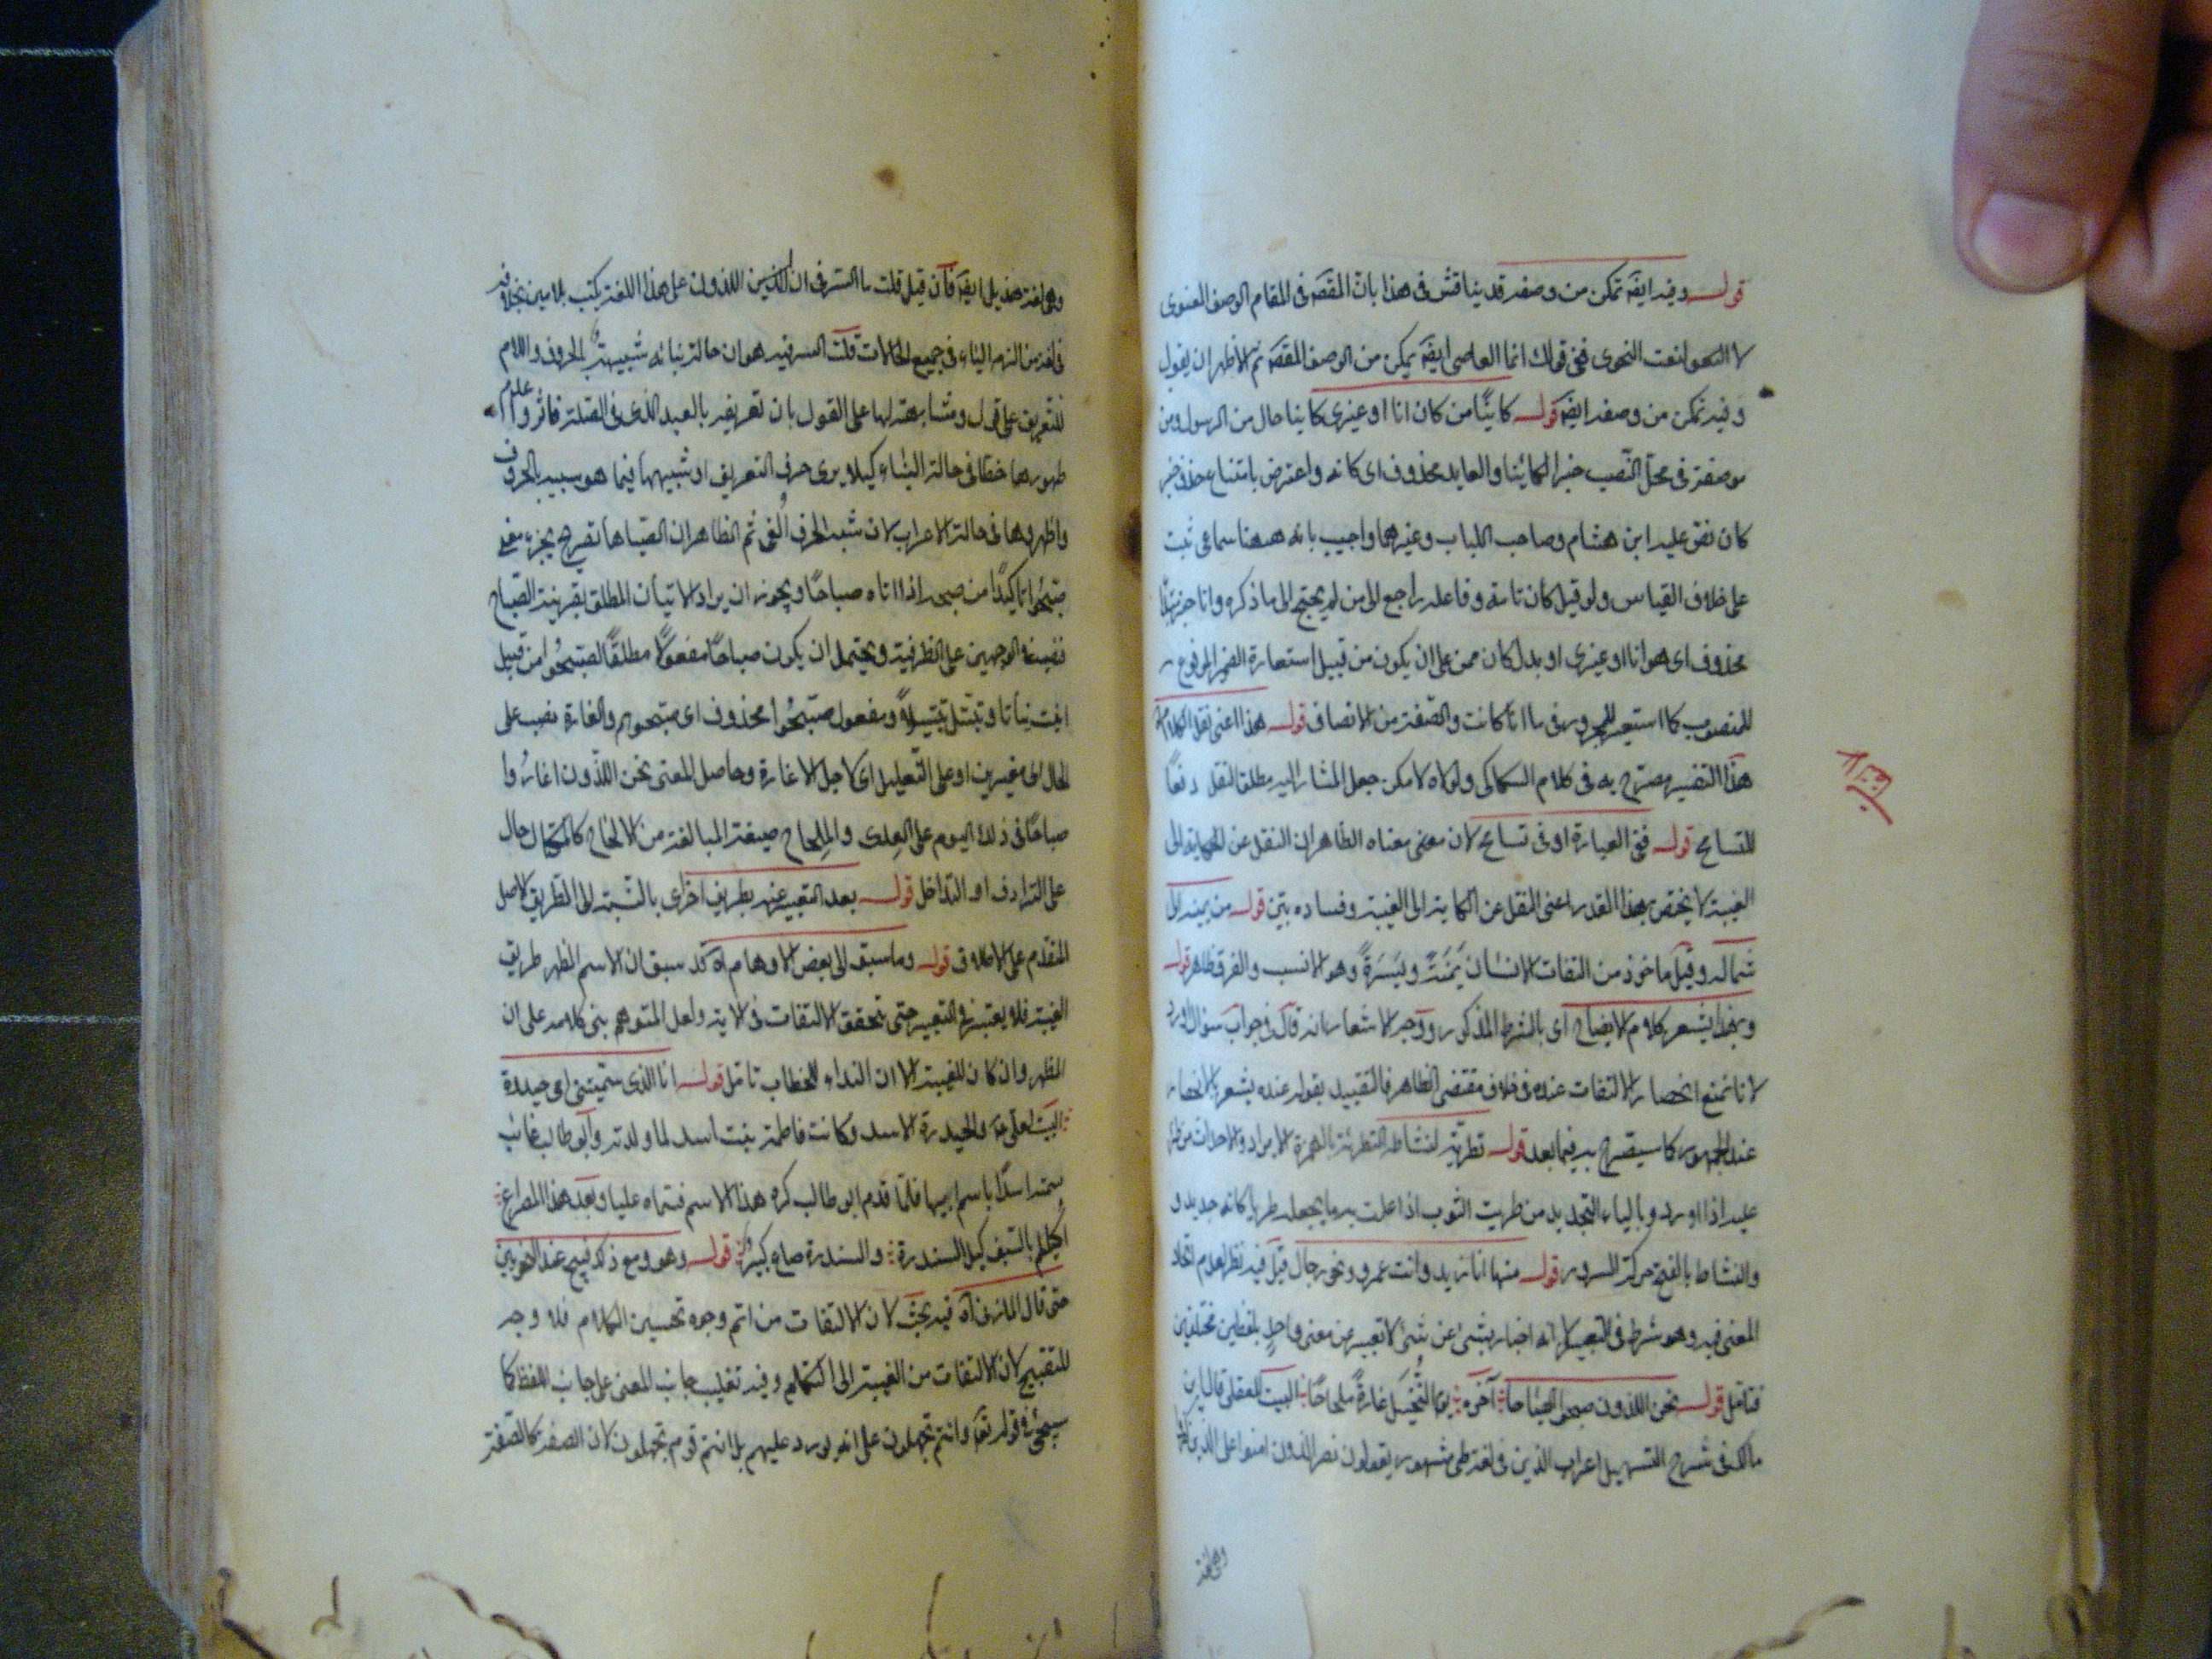 قوله وفيه ايضَ تمكن من وصفه قد يناقش فى هذا بان المقصَ فى المقام الوصف المعنوى
لا النعت النحوى ففى قولك انا العاصى ايضَ يمكن من الوصف المقصَ ثم الاظهر ان يقول
وفيه تمكن من وصفه ايضَ قوله كاينًا من كان انا او غيرى كاينا حال من الرسول ومن
موصفة فى محل النصب خبر الكائنا والعايد محذوف اى كانه واعترض بامتناع حذف خبر
كان نص عليه ابن هشام وصاحب اللباب وغيرهما واجيب بانه ههنا سماعى ثبت
على خلاف القياس ولو قيل كان تامة وفاعله راجع الى من لم يحتج الى ما ذكره وانا خبر مبتدأ
محذوف اى هو انا او غيرى او بدل كان من على ان يكون من قبيل استعارة الضمير المرفوع
للمنصوب كما استعير للمجرور فى ما انا كانت والصفة من الانصاف قوله هذا اعنى نقل الكلام
هذا التفسير مصرح به فى كلام السكاكى ولولاه لامكن جعل المشار اليه مطلق النقل دفعًا
للتسامح قوله ففى العبارة ادنى تسامح لان معنى معناه الظاهر ان النقل عن الحكاية الى
الغيبة لا يختص بهذا القدر اعنى النقل عن الحكاية الى الغيبة وفساده بيّن قوله من يمينه الى
شماله وقيل ماخوذ من التفات الانسان يَمْنَتً ويَسَرَةً وهو الانسب والفرق ظاهر قوله
وبهذا يشعر كلام الايضاح اى بالشرط المذكور ووجه الاشعار انه قال فى جواب سؤال اورد
لا نا نمنع انحصار الالتفات عنده فى خلاف مقتضى الظاهر فالتقييد بقوله عنده يشعر بالانحصار
عند الجمهور كما سيصرح به فيما بعد قوله تطرية لنشاطه التطرئة بالهمزة الايراد والاحداث من طرأ
عليه اذا اورد وبالياء التجديد من طريت الثوب اذا علت به ما يجعله طريا كانه جديد و
والنشاط بالفتح حركة السرور قوله منها انا زيد وانت عمرو ونحن رجال قيل فيه نظر لعدم اتحاد
المعنى فيه وهو شرط فى التعبير لانه اخبار بشئ عن شئ لا تعبير عن معنى واحد بلفظين مختلفين
فتامل قوله نحن اللذون صبحوا الصباحا آخره يوم النُّخَيل غارةً ملحاحًا البيت للعقيلى قال ابن
مالك فى شرح التسهيل اعراب الذين فى لغة طى مشهور يقولون نصر اللذون امنوا على الذين كفروا
وهى لغة
وهى لغة هذيل ايضَ فان قيل قلت ما السر فى ان الذين اللذون على هذا اللغة يكتب بلامين بخلافه
فى لغة من الزم الياء فى جميع الحالات قلت السر فيه هو ان حالة بنائه شبيهة بالحروف واللام
للتعريف على قول ومشابهة لها على القول بان تعريفه بالعهد الذى فى الصلة فاثروا عدم
ظهورها خطا فى حالة البناء كيلا يرى حرف التعريف او شبيهها فيما هو شبيه بالحروف
واظهروها فى حالة الاعراب لان شبه الحرف اُلغى ثم الظاهر ان الصباحا تصريح بجزء معنى
صبّحُوا تاكيدًا من صبحه اذا اتاه صباحًا ويجوز ان يراد الاتيان المطلق بقرينة الصباح
نصبه فى الوجهين على الظرفية ويحتمل ان يكون صباحًا مفعولًا مطلقًا لصبّحُوا من قبيل
انبت نباتا وتبتل تبتيلًا ومفعول صبّحُوا محذوف اى صبحوهم والغارة نصب على
الحال اى مغيرين او على التعليل اى لاجل الاغارة وحاصل المعنى نحن اللذون اغارُوا
صباحًا فى ذلك اليوم على العدى والمِلحاح صيغة المبالغة من الالحاح كالمكحال حال
على الترادف او التداخل قوله بعد التعبير عنه بطريق اخرى بالنسبة الى الطريق الاصل
المتقدم على الاطلاق قوله وما سبق الى بعض الاوهام آه قد سبق ان الاسم المظهر طريق
الغيبة فلا يعتبر فى التعبير حتى يتحقق الالتفات فى الاية ولعل المتوهم بنى كلامه على ان
المظهر وان كان للغيبة الا ان النداء للخطاب تامل قوله انا الذى سمتنى امى حيدرة
البيت لعلى رَضَ والحيدرة الاسد وكانت فاطمة بنت اسد لما ولدته وابو طالب غائب
سمته اسدًا باسم ابيها فلما قدم ابو طالب كره هذا الاسم فسماه عليا وبعده هذا المصراع
اكيلكم بالسيف كيل السندرة والسندرة صاع كبير قوله وهو ومع ذلك قبيح عند النحويين
حتى قال المازنى آه فيه بحث لان الالتفات من اتم وجوه تحسين الكلام فلا وجه
للتقبيح لان الالتفات من الغيبة الى التكلم وفيه تغليب جانب المعنى على جانب اللفظ كما
سيجئ فى قوله تعَ وانتم تجهلون على انه يورد عليهم بل انتم قوم تجهلون لان الصفة كالصلة